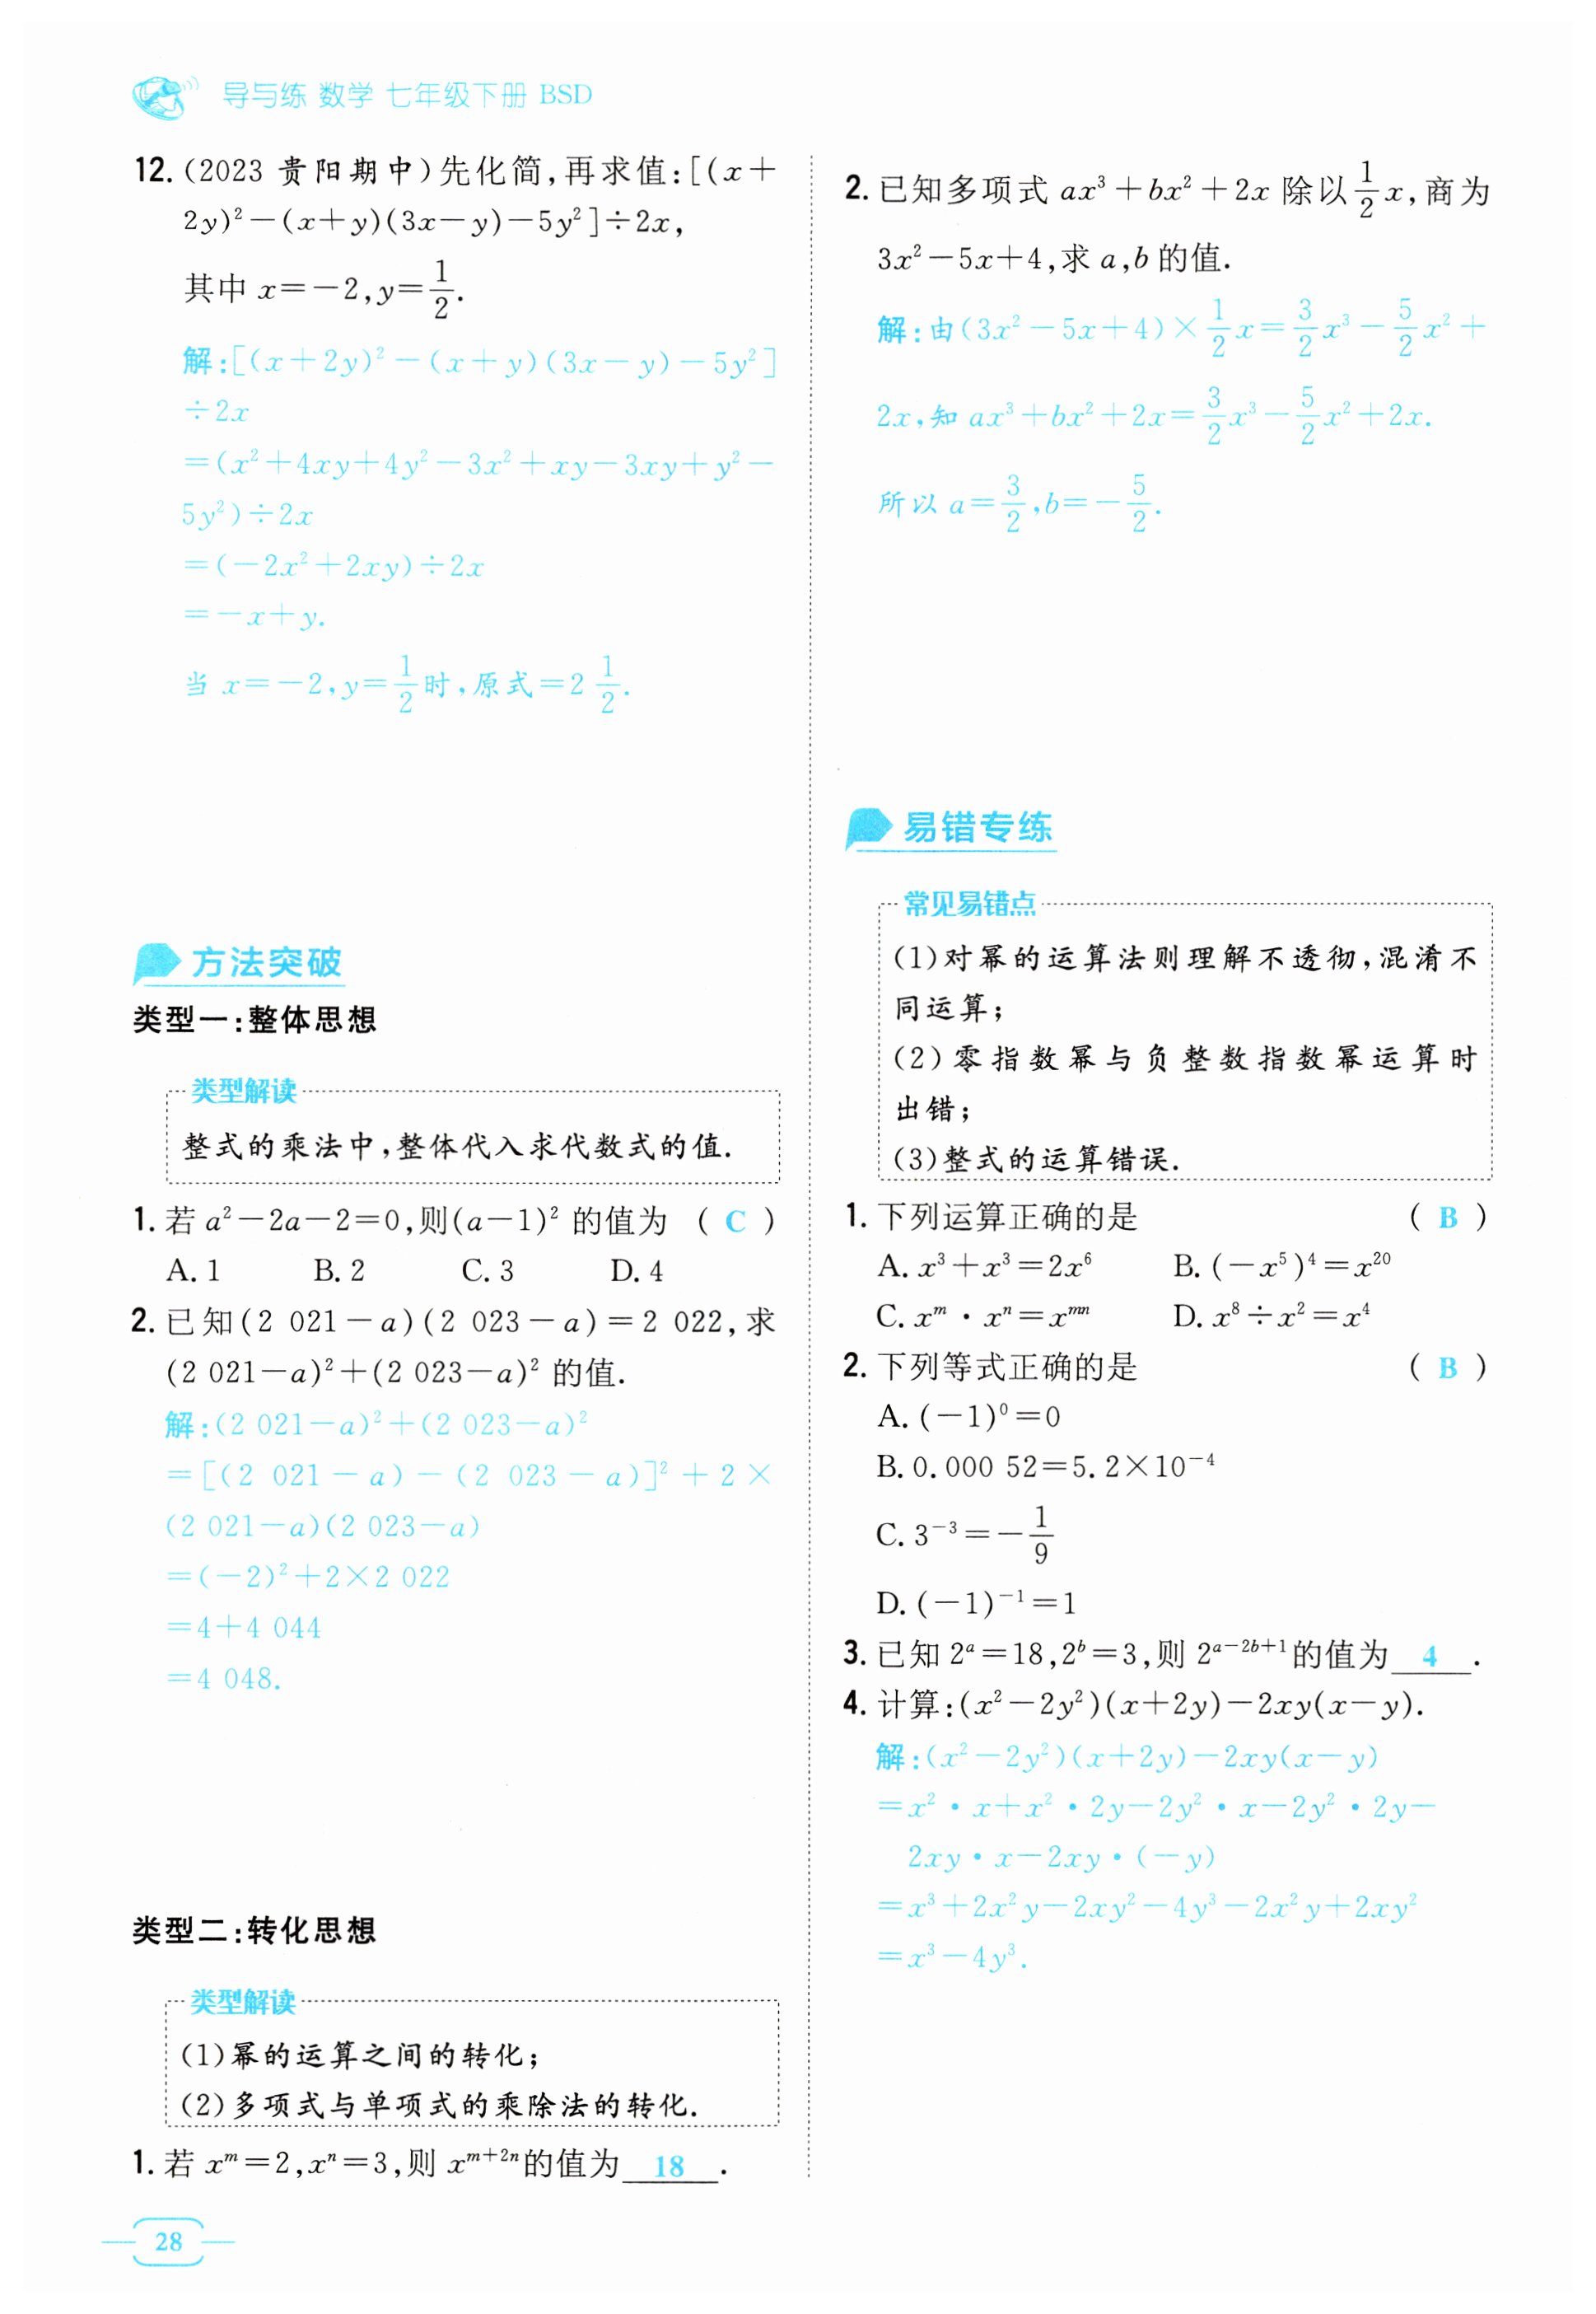 导与练 数学 七年级下册 BSD
12.(2023 贵阳期中)先化简,再求值:[(x+
2y)²-(x+y)(3x-y)-5y²]÷2x,
其中 x=-2,y=1/2.
解:[(x+2y)²-(x+y)(3x-y)-5y²]
÷2x
=(x²+4xy+4y²-3x²+xy-3xy+y²-
5y²)÷2x
=(-2x²+2xy)÷2x
=-x+y.
当 x=-2,y=1/2时,原式=2 1/2.
方法突破
类型一:整体思想
类型解读
整式的乘法中,整体代入求代数式的值.
1.若 a²-2a-2=0,则(a-1)² 的值为 ( C )
A.1 B.2 C.3 D.4
2.已知(2 021-a)(2 023-a)=2 022,求
(2 021-a)²+(2 023-a)² 的值.
解:(2 021-a)²+(2 023-a)²
=[(2 021-a)-(2 023-a)]²+2×
(2 021-a)(2 023-a)
=(-2)²+2×2 022
=4+4 044
=4 048.
类型二:转化思想
类型解读
(1)幂的运算之间的转化;
(2)多项式与单项式的乘除法的转化.
1.若 xᵐ=2,xⁿ=3,则 xᵐ⁺²ⁿ的值为 18 .
28
2.已知多项式 ax³+bx²+2x 除以1/2x,商为
3x²-5x+4,求 a,b 的值.
解:由(3x²-5x+4)×1/2x=3/2x³-5/2x²+
2x,知 ax³+bx²+2x=3/2x³-5/2x²+2x.
所以 a=3/2,b=-5/2.
易错专练
常见易错点
(1)对幂的运算法则理解不透彻,混淆不
同运算;
(2)零指数幂与负整数指数幂运算时
出错;
(3)整式的运算错误.
1.下列运算正确的是 ( B )
A.x³+x³=2x⁶ B.(-x⁵)⁴=x²⁰
C.xᵐ·xⁿ=xᵐⁿ D.x⁸÷x²=x⁴
2.下列等式正确的是 ( B )
A.(-1)⁰=0
B.0.000 52=5.2×10⁻⁴
C.3⁻³=-1/9
D.(-1)⁻¹=1
3.已知 2ᵃ=18,2ᵇ=3,则 2ᵃ⁻²ᵇ⁺¹的值为 4 .
4.计算:(x²-2y²)(x+2y)-2xy(x-y).
解:(x²-2y²)(x+2y)-2xy(x-y)
=x²·x+x²·2y-2y²·x-2y²·2y-
2xy·x-2xy·(-y)
=x³+2x²y-2xy²-4y³-2x²y+2xy²
=x³-4y³.